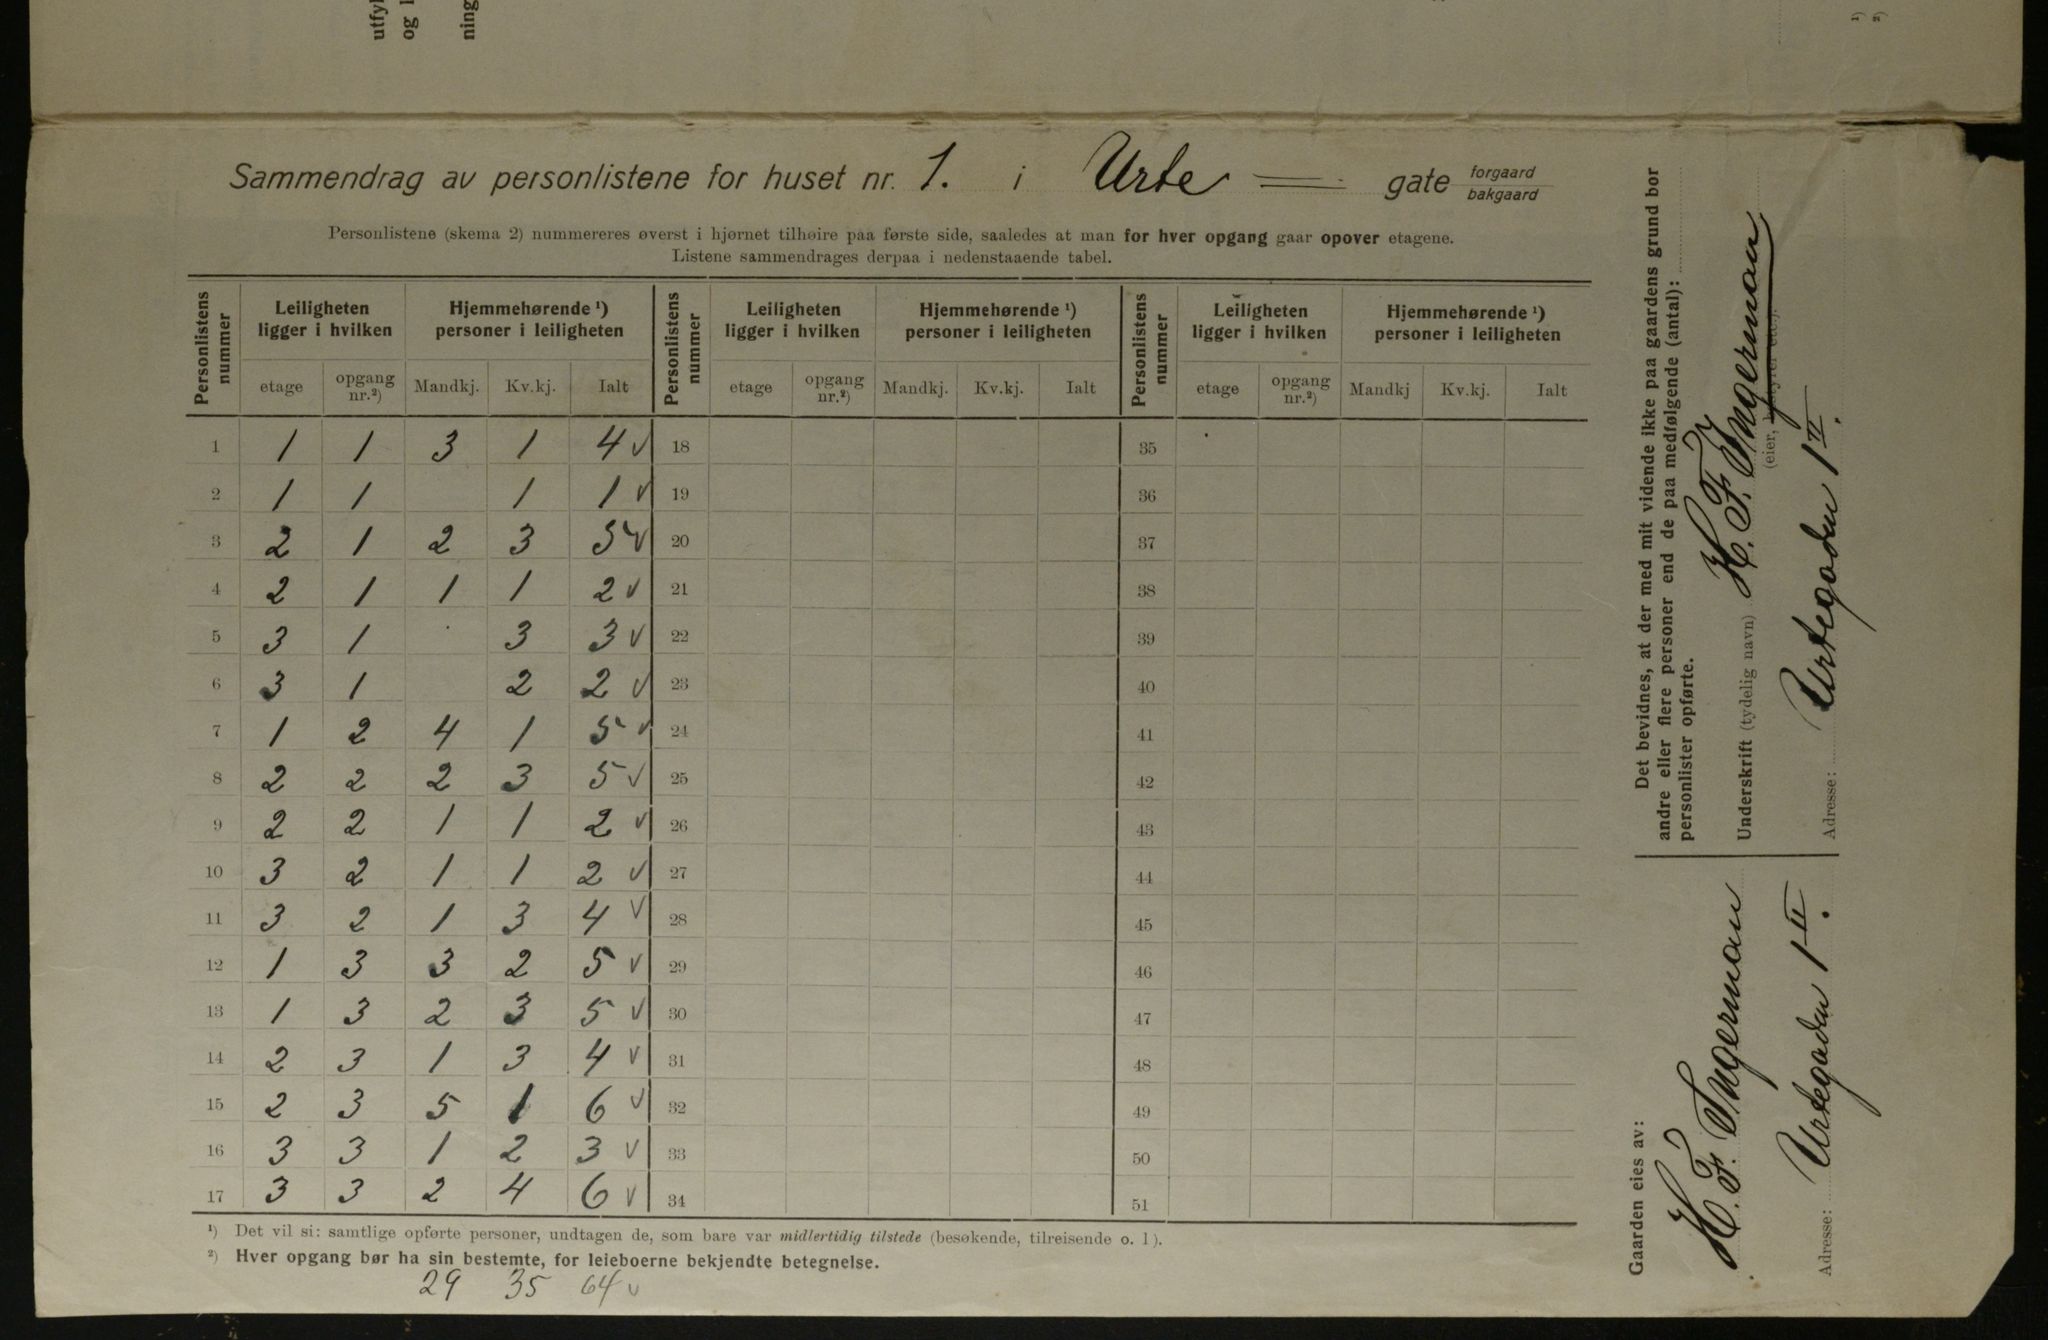 utfyl
og l
ning
¹)
²)
Sammendrag av personlistene for huset nr. 1. i Urte = gate forgaard bakgaard
Personlistene (skema 2) nummereres øverst i hjørnet tilhøire paa første side, saaledes at man for hver opgang gaar opover etagene.
Listene sammendrages derpaa i nedenstaaende tabel.
Personlistens nummer | Leiligheten ligger i hvilken | Hjemmehørende ¹) personer i leiligheten | Personlistens nummer | Leiligheten ligger i hvilken | Hjemmehørende ¹) personer i leiligheten | Personlistens nummer | Leiligheten ligger i hvilken | Hjemmehørende ¹) personer i leiligheten
etage | opgang nr.²) | Mandkj. | Kv.kj. | Ialt | etage | opgang nr.²) | Mandkj. | Kv.kj. | Ialt | etage | opgang nr.²) | Mandkj | Kv.kj. | Ialt
1 1 1 3 1 4 v 18 35
2 1 1 1 1 v 19 36
3 2 1 2 3 5 v 20 37
4 2 1 1 1 2 v 21 38
5 3 1 3 3 v 22 39
6 3 1 2 2 v 23 40
7 1 2 4 1 5 v 24 41
8 2 2 2 3 5 v 25 42
9 2 2 1 1 2 v 26 43
10 3 2 1 1 2 v 27 44
11 3 2 1 3 4 v 28 45
12 1 3 3 2 5 v 29 46
13 1 3 2 3 5 v 30 47
14 2 3 1 3 4 v 31 48
15 2 3 5 1 6 v 32 49
16 3 3 1 2 3 v 33 50
17 3 3 2 4 6 v 34 51
¹) Det vil si: samtlige opførte personer, undtagen de, som bare var midlertidig tilstede (besøkende, tilreisende o. l).
²) Hver opgang bør ha sin bestemte, for leieboerne bekjendte betegnelse.
29 35 64 v
Det bevidnes, at der med mit vidende ikke paa gaardens grund bor
andre eller flere personer end de paa medfølgende (antal):
personlister opførte.
Underskrift (tydelig navn) H. F. Ingerman
(eier, bestyrer etc.).
Adresse: Urtegaden 1 II.
Gaarden eies av:
H. F. Ingerman
Adresse: Urtegaden 1 II.